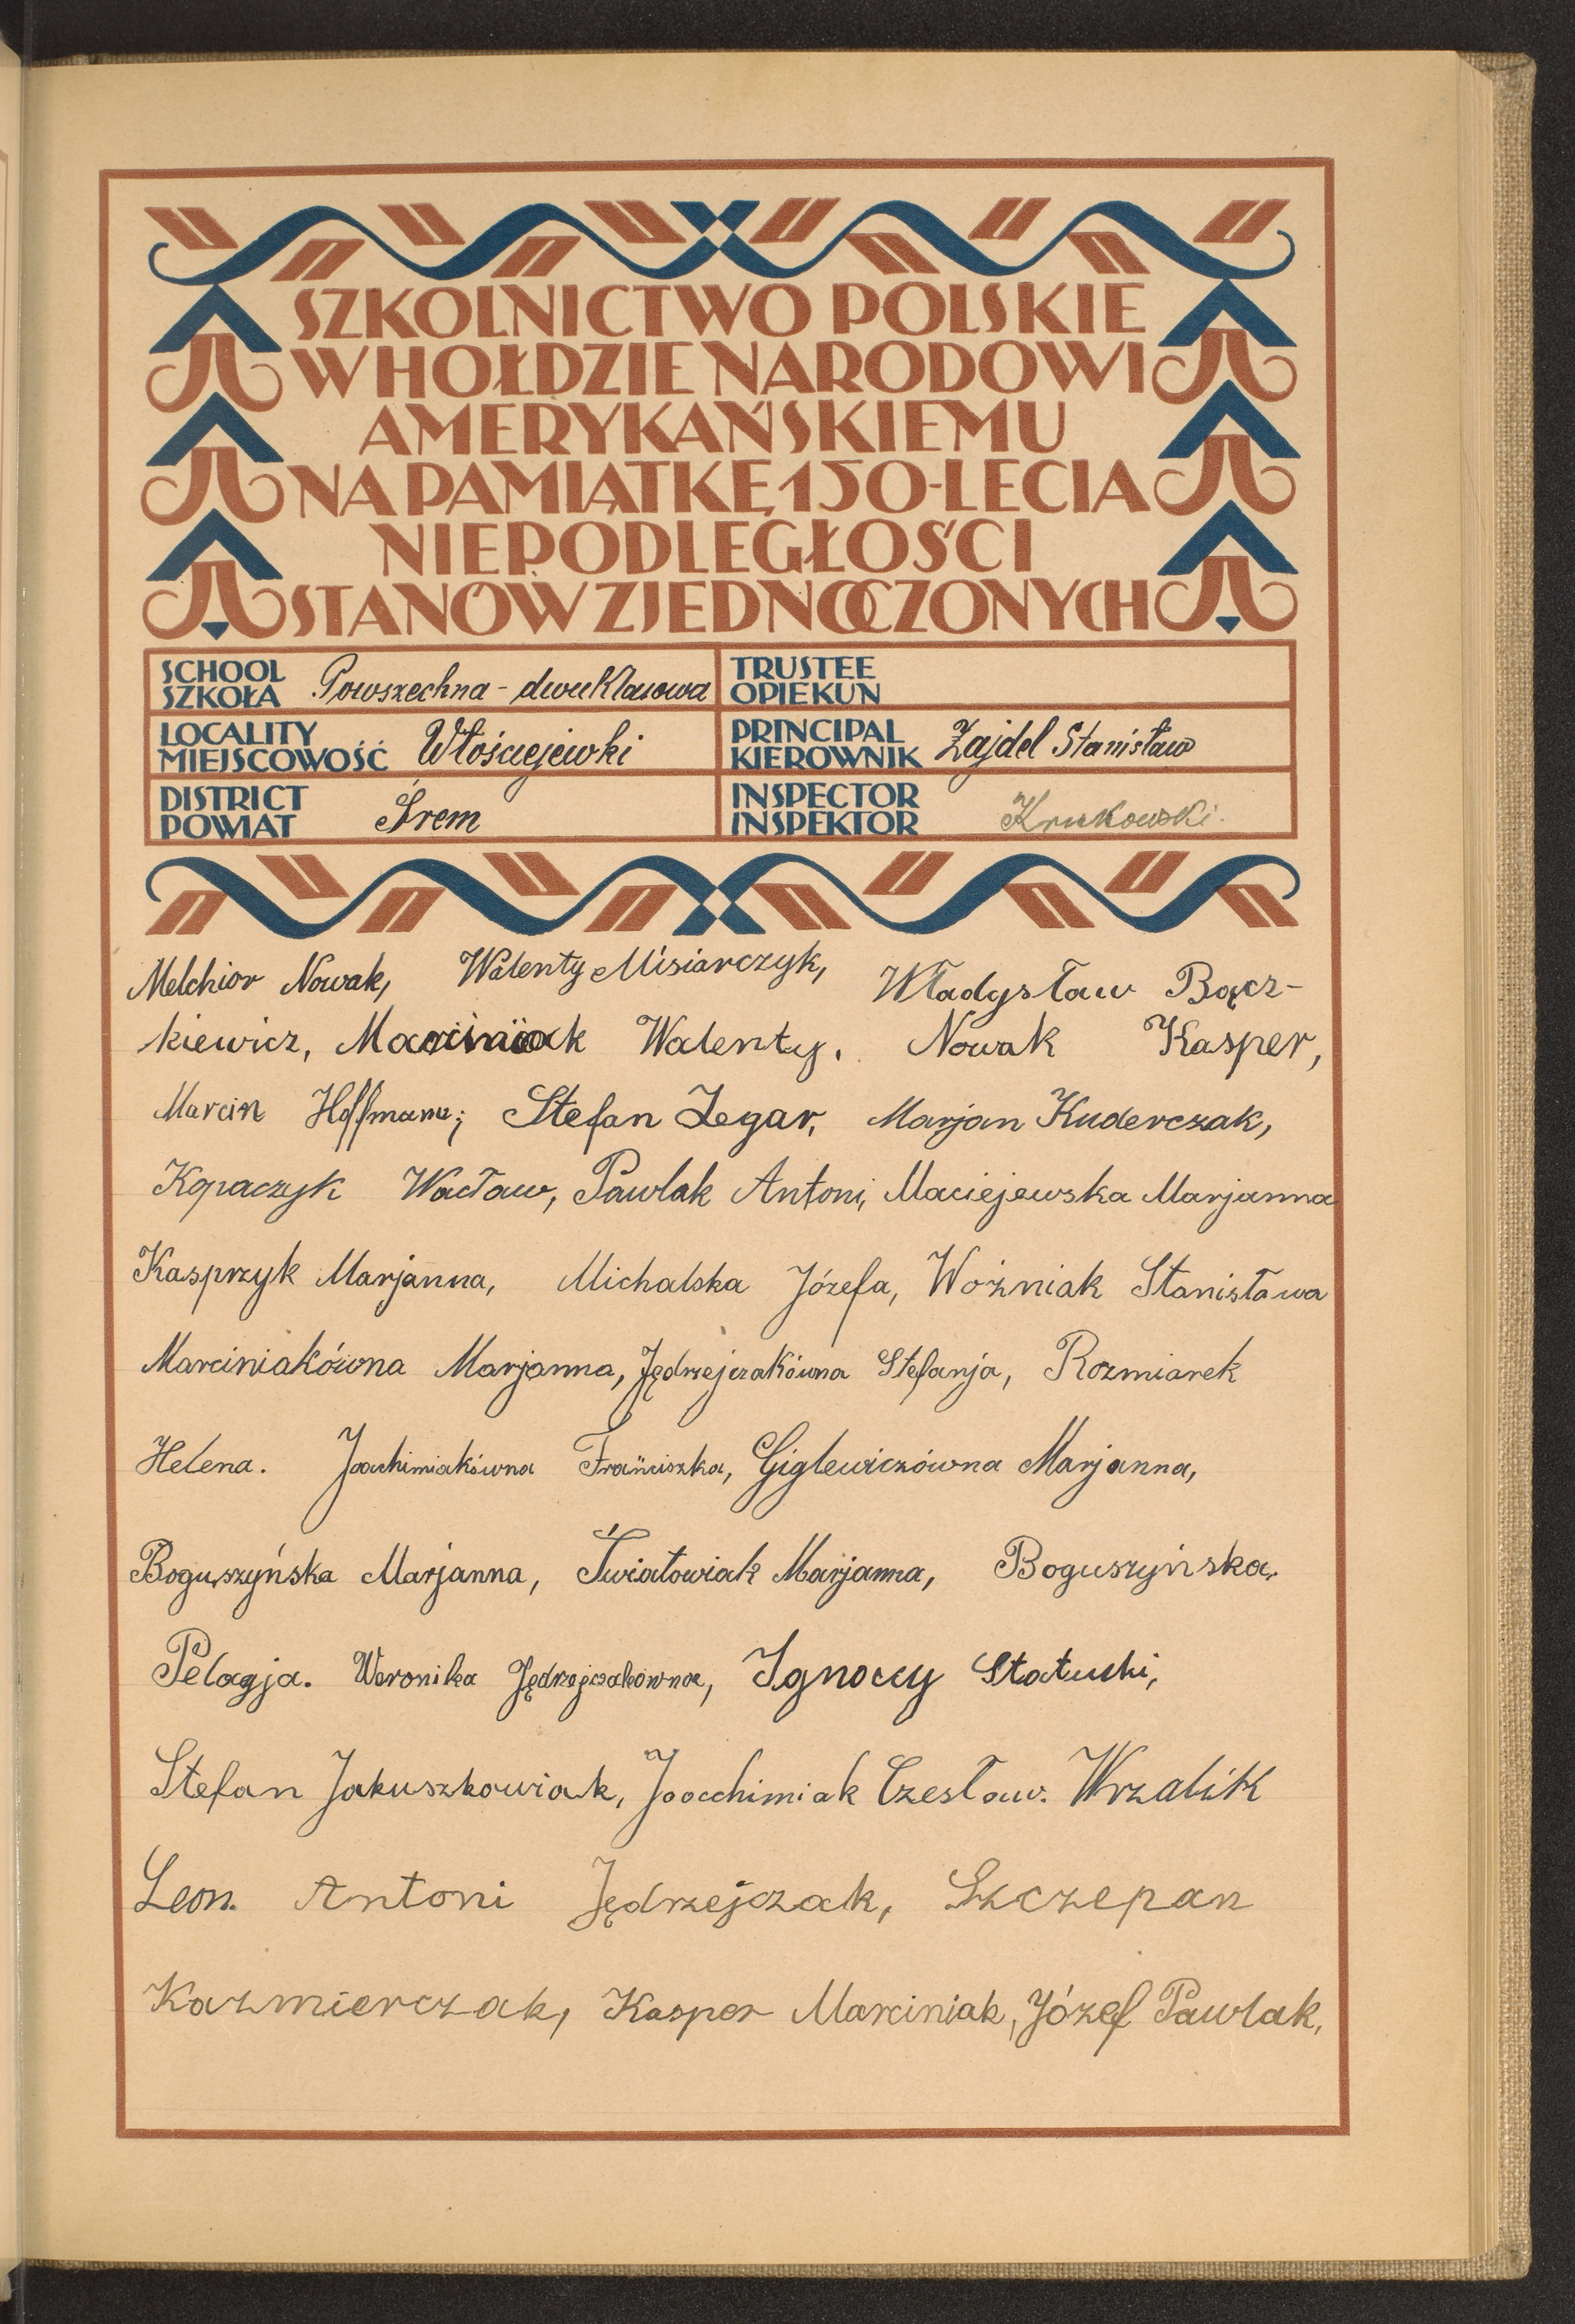 SZKOLNICTWO POLSKIE
W HOŁDZIE NARODOWI
AMERYKAŃSKIEMU
NA PAMIĄTKĘ 150-LECIA
NIEPODLEGŁOŚCI
STANÓW ZJEDNOCZONYCH
SCHOOL
SZKOŁA Powszechna - dwuklasowa
TRUSTEE
OPIEKUN
LOCALITY
MIEJSCOWOŚĆ Włościejewki
PRINCIPAL
KIEROWNIK Zajdel Stanisław
DISTRICT
POWIAT Śrem
INSPECTOR
INSPEKTOR Krukowski.
Melchior Nowak, Walenty Misiarczyk, Władysław Bącz-
kiewicz, Marciniak Walenty, Nowak Kasper,
Marcin Hoffmann; Stefan Zegar, Marjan Kuderczak,
Kopaczyk Wacław, Pawlak Antoni, Maciejewska Marjanna
Kasprzyk Marjanna, Michalska Józefa, Woźniak Stanisława
Marciniakówna Marjanna, Jędrzejczakówna Stefanja, Rozmiarek
Helena. Joachimiakówna Franciszka, Giglewiczówna Marjanna,
Boguszyńska Marjanna, Światowiak Marjanna, Boguszyńska
Pelagja. Weronika Jędrzejczakówna, Ignacy Statucki,
Stefan Jakuszkowiak, Joachimiak Czesław. Wrzalik
Leon. Antoni Jędrzejczak, Szczepan
Kazmierczak, Kasper Marciniak, Józef Pawlak,